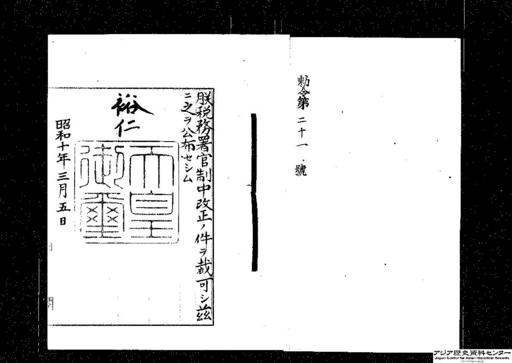 勅令第二十一號
朕税務署官制中改正ノ件ヲ裁可シ茲
ニ之ヲ公布セシム
裕仁
天皇御璽
昭和十年三月五日
アジア歴史資料センター
Japan Center for Asian Historical Records